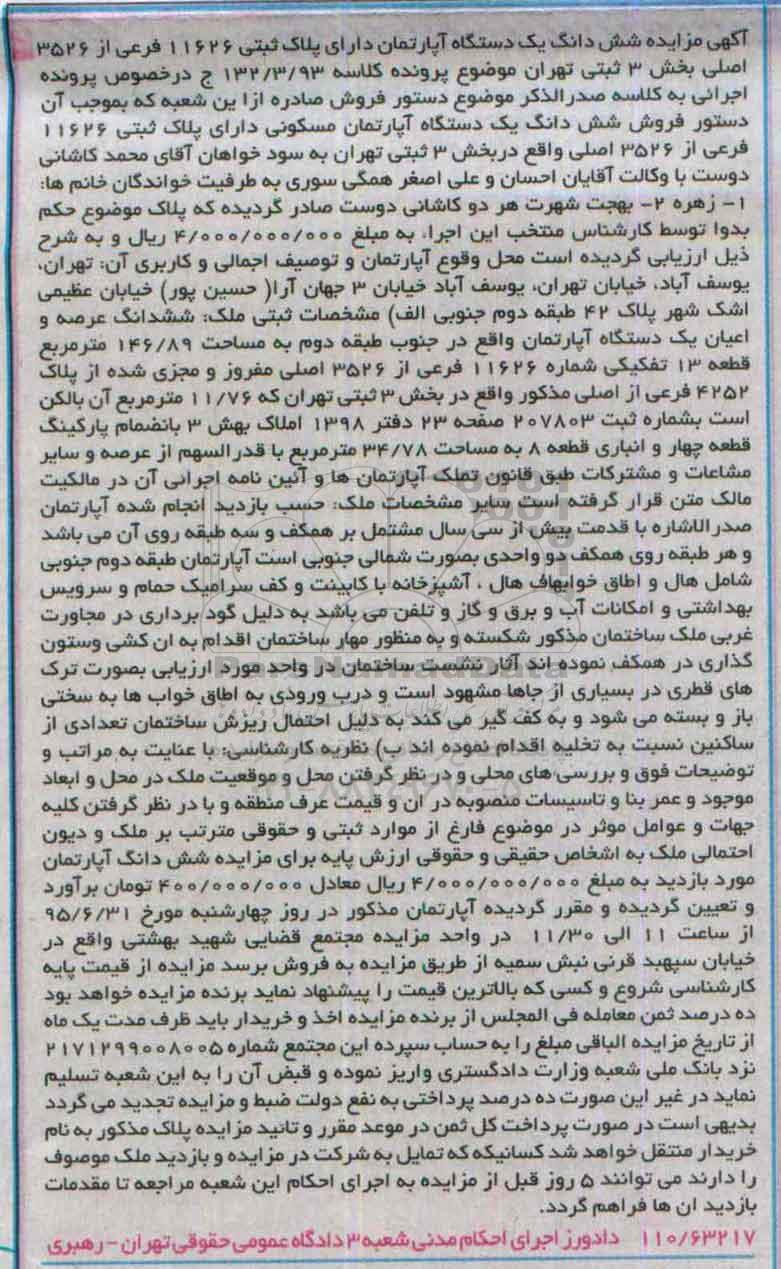 آگهی مزایده شش دانگ یک دستگاه آپارتمان دارای پلاک ثبتی ۱۱۶۲۶ فرعی از ۳۵۲۶
اصلی بخش ۳ ثبتی تهران موضوع پرونده کلاسه ۱۳۲/۳/۹۳ ج درخصوص پرونده
اجرائی به کلاسه صدرالذکر موضوع دستور فروش صادره ازا ین شعبه که بموجب آن
دستور فروش شش دانگ یک دستگاه آپارتمان مسکونی دارای پلاک ثبتی ۱۱۶۲۶
فرعی از ۳۵۲۶ اصلی واقع دربخش ۳ ثبتی تهران به سود خواهان آقای محمد کاشانی
دوست با وکالت آقایان احسان و علی اصغر همگی سوری به طرفیت خواندگان خانم ها:
۱- زهره ۲- بهجت شهرت هر دو کاشانی دوست صادر گردیده که پلاک موضوع حکم
بدوا توسط کارشناس منتخب این اجراء به مبلغ ۴/۰۰۰/۰۰۰/۰۰۰ ریال و به شرح
ذیل ارزیابی گردیده است محل وقوع آپارتمان و توصیف اجمالی و کاربری آن: تهران،
یوسف آباد، خیابان تهران، یوسف آباد خیابان ۳ جهان آرا( حسین پور) خیابان عظیمی
اشک شهر پلاک ۴۲ طبقه دوم جنوبی الف) مشخصات ثبتی ملک: ششدانگ عرصه و
اعیان یک دستگاه آپارتمان واقع در جنوب طبقه دوم به مساحت ۱۴۶/۸۹ مترمربع
قطعه ۱۳ تفکیکی شماره ۱۱۶۲۶ فرعی از ۳۵۲۶ اصلی مفروز و مجزی شده از پلاک
۴۲۵۲ فرعی از اصلی مذکور واقع در بخش ۳ ثبتی تهران که ۱۱/۷۶ مترمربع آن بالکن
است بشماره ثبت ۲۰۷۸۰۳ صفحه ۲۳ دفتر ۱۳۹۸ املاک بهش ۳ بانضمام پارکینگ
قطعه چهار و انباری قطعه ۸ به مساحت ۳۴/۷۸ مترمربع با قدرالسهم از عرصه و سایر
مشاعات و مشترکات طبق قانون تملک آپارتمان ها و آئین نامه اجرائی آن در مالکیت
مالک متن قرار گرفته است سایر مشخصات ملک: حسب بازدید انجام شده آپارتمان
صدرالاشاره با قدمت بیش از سی سال مشتمل بر همکف و سه طبقه روی آن می باشد
و هر طبقه روی همکف دو واحدی بصورت شمالی جنوبی است آپارتمان طبقه دوم جنوبی
شامل هال و اطاق خوابهاف هال ، آشپزخانه با کابینت و کف سرامیک حمام و سرویس
بهداشتی و امکانات آب و برق و گاز و تلفن می باشد به دلیل گود برداری در مجاورت
غربی ملک ساختمان مذکور شکسته و به منظور مهار ساختمان اقدام به ان کشی وستون
گذاری در همکف نموده اند آثار نشست ساختمان در واحد مورد ارزیابی بصورت ترک
های قطری در بسیاری از جاها مشهود است و درب ورودی به اطاق خواب ها به سختی
باز و بسته می شود و به کف گیر می کند به دلیل احتمال ریزش ساختمان تعدادی از
ساکنین نسبت به تخلیه اقدام نموده اند ب) نظریه کارشناسی: با عنایت به مراتب و
توضیحات فوق و بررسی های محلی و در نظر گرفتن محل و موقعیت ملک در محل و ابعاد
موجود و عمر بنا و تاسیسات منصوبه در ان و قیمت عرف منطقه و با در نظر گرفتن کلیه
جهات و عوامل موثر در موضوع فارغ از موارد ثبتی و حقوقی مترتب بر ملک و دیون
احتمالی ملک به اشخاص حقیقی و حقوقی ارزش پایه برای مزایده شش دانگ آپارتمان
مورد بازدید به مبلغ ۴/۰۰۰/۰۰۰/۰۰۰ ریال معادل ۴۰۰/۰۰۰/۰۰۰ تومان برآورد
و تعیین گردیده و مقرر گردیده آپارتمان مذکور در روز چهارشنبه مورخ ۹۵/۶/۳۱
از ساعت ۱۱ الی ۱۱/۳۰ در واحد مزایده مجتمع قضایی شهید بهشتی واقع در
خیابان سپهبد قرنی نبش سمیه از طریق مزایده به فروش برسد مزایده از قیمت پایه
کارشناسی شروع و کسی که بالاترین قیمت را پیشنهاد نماید برنده مزایده خواهد بود
ده درصد ثمن معامله فی المجلس از برنده مزایده اخذ و خریدار باید ظرف مدت یک ماه
از تاریخ مزایده الباقی مبلغ را به حساب سپرده این مجتمع شماره ۲۱۷۱۲۹۹۰۰۸۰۰۵
نزد بانک ملی شعبه وزارت دادگستری واریز نموده و قبض آن را به این شعبه تسلیم
نماید در غیر این صورت ده درصد پرداختی به نفع دولت ضبط و مزایده تجدید می گردد
بدیهی است در صورت پرداخت کل ثمن در موعد مقرر و تائید مزایده پلاک مذکور به نام
خریدار منتقل خواهد شد کسانیکه که تمایل به شرکت در مزایده و بازدید ملک موصوف
را دارند می توانند ۵ روز قبل از مزایده به اجرای احکام این شعبه مراجعه تا مقدمات
بازدید ان ها فراهم گردد.
۱۱۰/۶۳۲۱۷ دادورز اجرای احکام مدنی شعبه ۳ دادگاه عمومی حقوقی تهران - رهبری